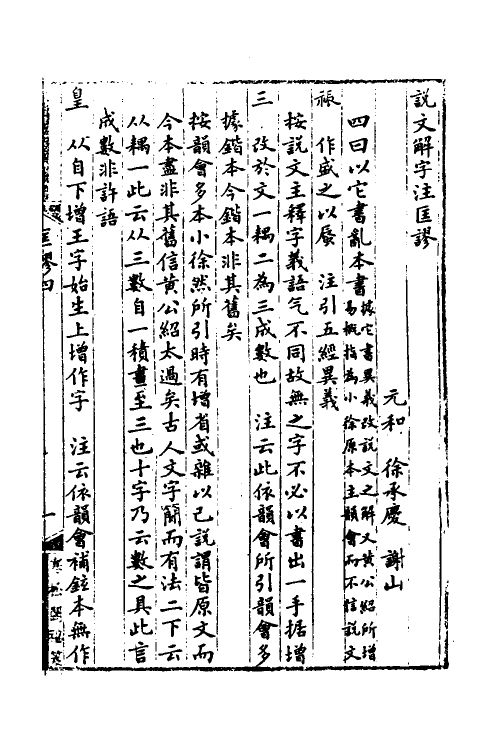 説文解字注匡謬
元和 徐承慶 謝山
四曰以它書亂本書據它書異義改説文之解又黃公紹所增
易概指為小徐原本主韻會而不信説文
祳 作盛之以蜃 注引五經異義
按説文主釋字義語气不同故無之字不必以書出一手据增
三 改於文一耦二為三成數也 注云此依韻會所引韻會多
據鍇本今鍇本非其舊矣
按韻會多本小徐然所引時有增省或雜以己説謂皆原文而
今本盡非其舊信黃公紹太過矣古人文字簡而有法二下云
从耦一此云从三數自一積畫至三也十字乃云數之具此言
成數非許語
皇 从自下增王字始生上增作字 注云依韻會補鉉本無作
匡謬四
一